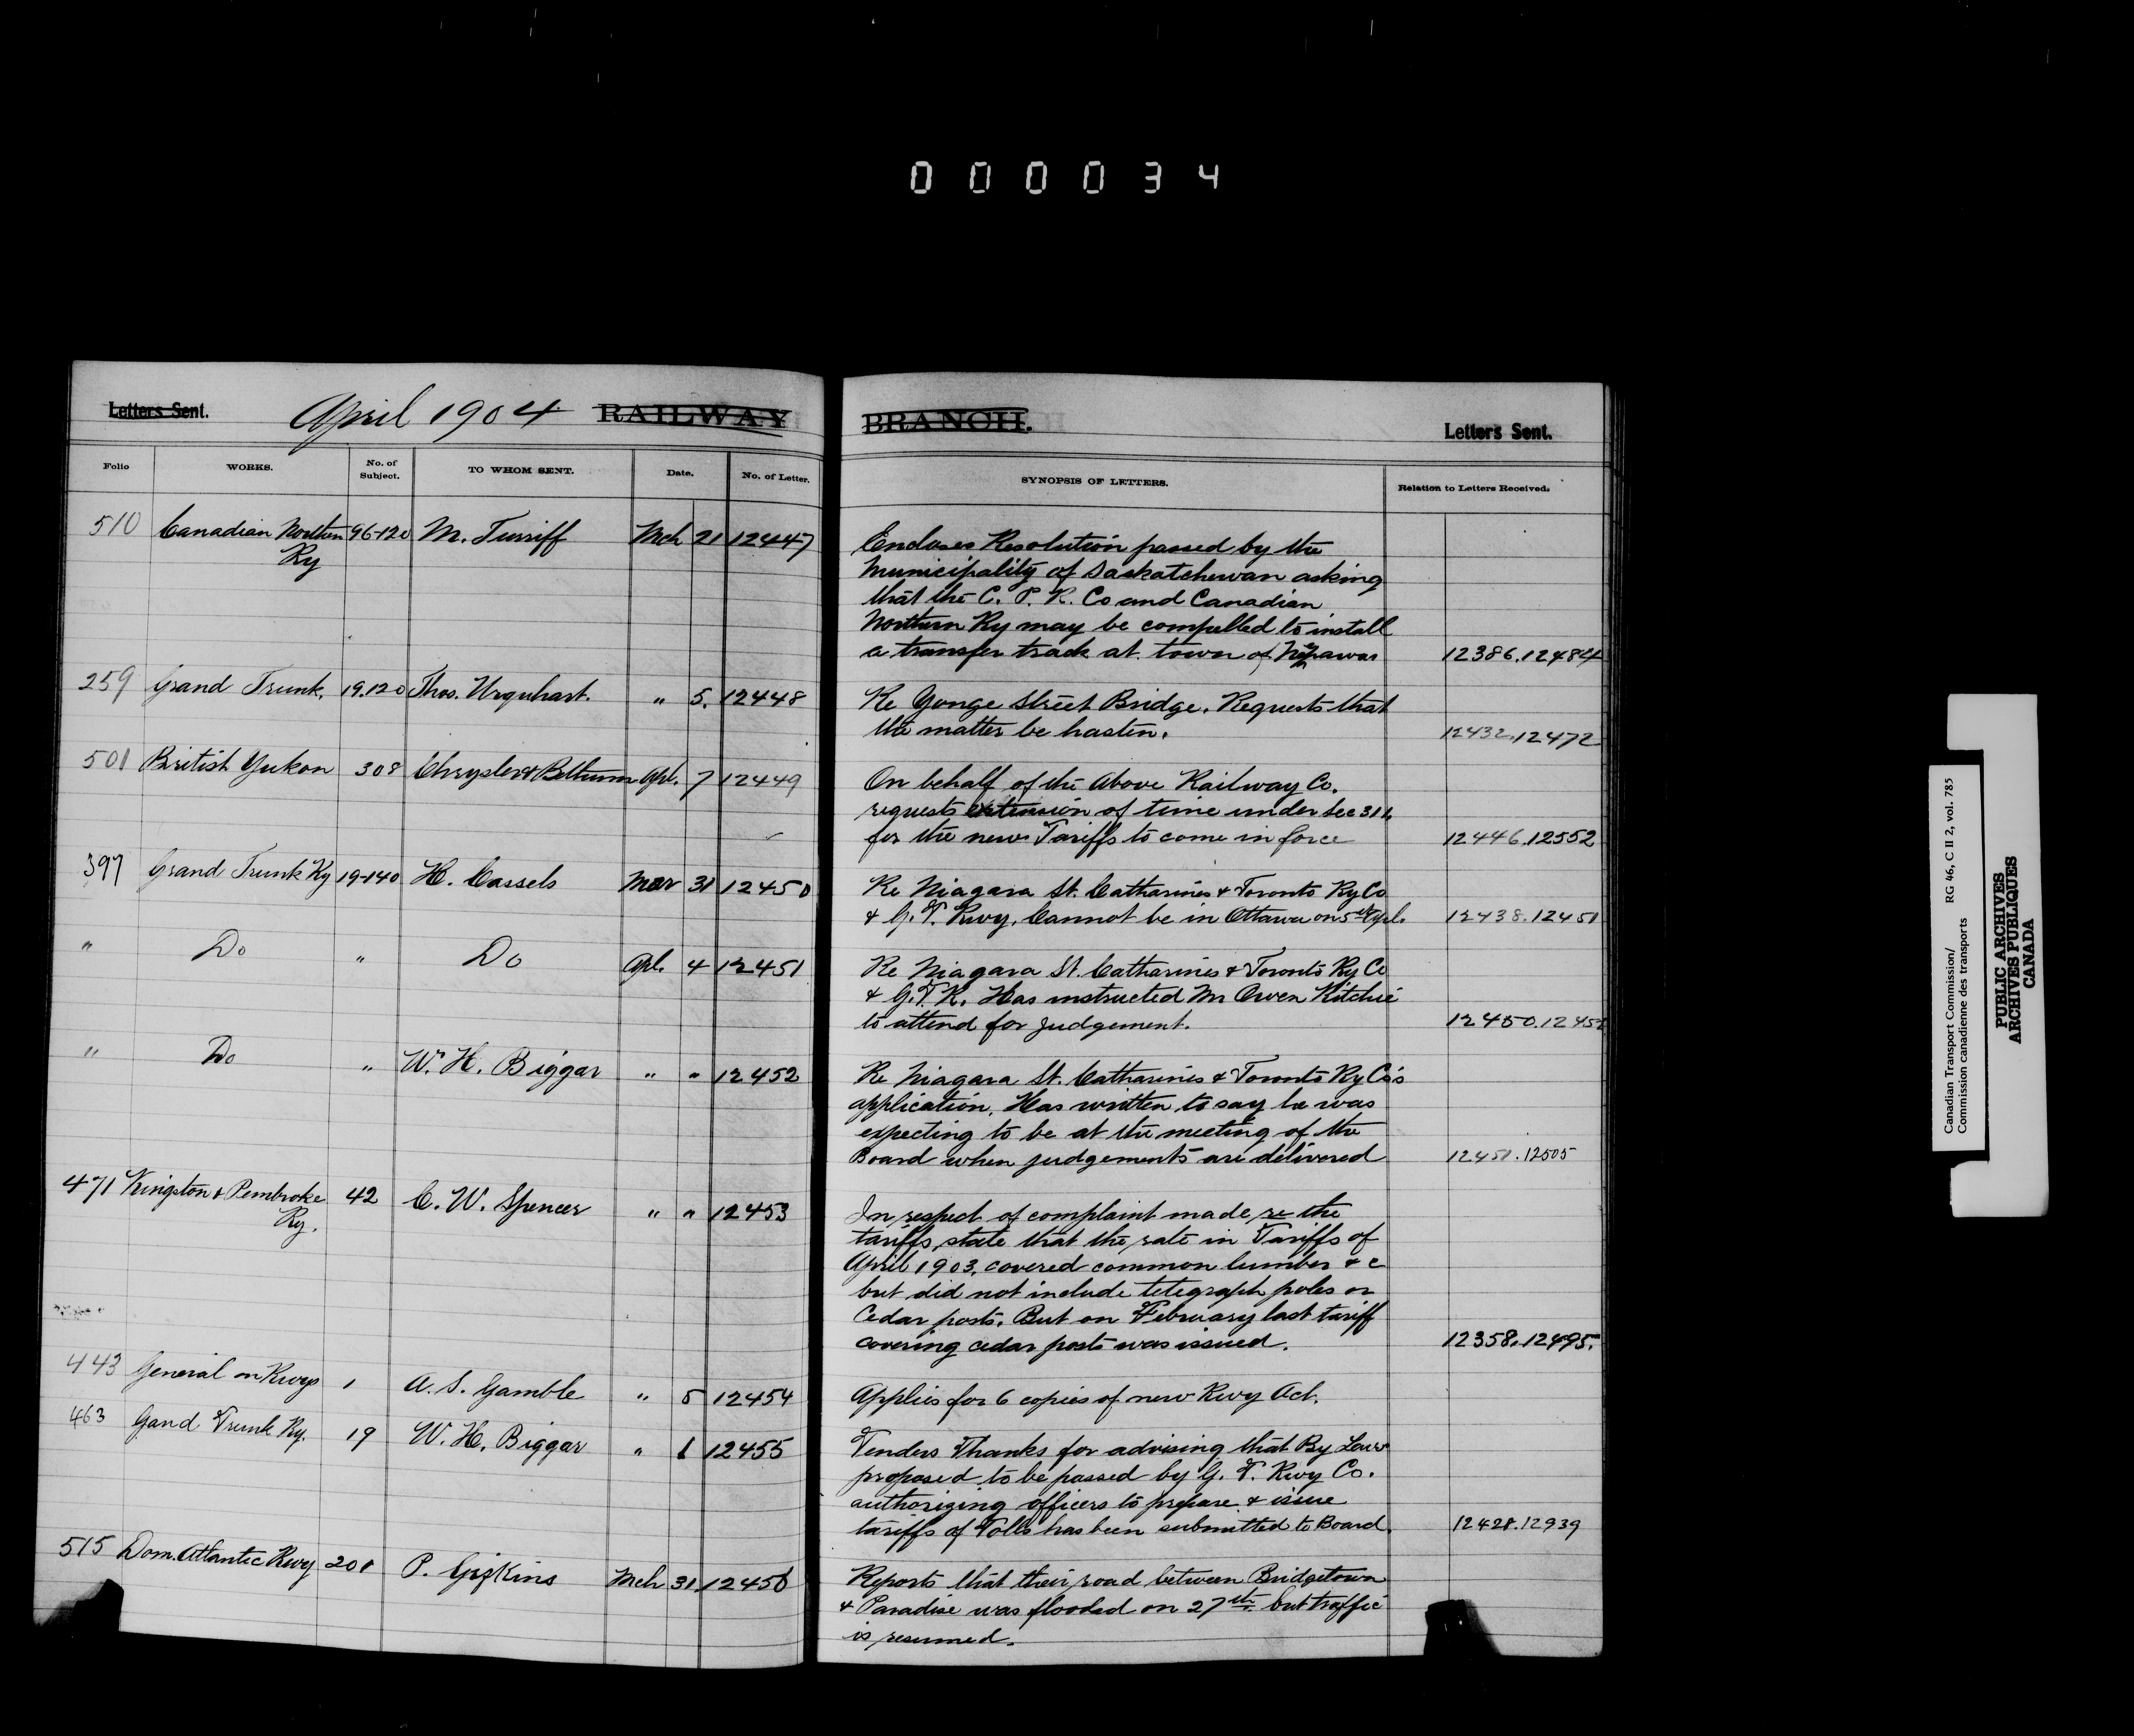 000034
Letters Sent. April 1904 RAILWAY BRANCH. Letters Sent.
Folio WORKS. No. of Subject. TO WHOM SENT. Date. No. of Letter. SYNOPSIS OF LETTERS. Relation to Letters Received.
510 Canadian Northern 96-120 M. Turriff Mch 21 12447 Encloses Resolution passed by the
Ry Municipality of Saskatchewan asking
that the C. P. R. Co and Canadian
Northern Ry may be compelled to install
a transfer track at town of Neepawa 12386.12484
259 Grand Trunk. 19.120 Thos. Urquhart. " 5. 12448 Re Yonge Street Bridge. Requests that
the matter be hasten. 12432.12472
501 British Yukon 308 Chrysler & Bethune Apl. 7 12449 On behalf of the Above Railway Co.
requests extension of time under Sec 311.
for the new Tariffs to come in force 12446.12552
397 Grand Trunk Ry 19-140 H. Cassels Mar 31 12450 Re Niagara St. Catharines & Toronto Ry Co
& G. T. Rwy. Cannot be in Ottawa on 5th Apl. 12438.12451
" Do " Do Apl. 4 12451 Re Niagara St. Catharines & Toronto Ry Co
& G.T.R. Has instructed Mr Owen Ritchie
to attend for judgement. 12450.12452
" Do " W. H. Biggar " " 12452 Re Niagara St. Catharines & Toronto Ry Co's
application. Has written to say he was
expecting to be at the meeting of the
Board when judgements are delivered 12451.12505
471 Kingston & Pembroke 42 C. W. Spencer " " 12453 In respect of complaint made re the
Ry. tariffs state that the rate in Tariffs of
April 1903, covered common lumber & c
but did not include telegraph poles or
Cedar posts. But on February last tariff
covering cedar posts was issued. 12358.12495.
443 General on Rwys 1 A. S. Gamble " 5 12454 Applies for 6 copies of new Rwy Act.
463 Gand Trunk Ry. 19 W. H. Biggar " 1 12455 Tenders Thanks for advising that By Law
proposed to be passed by G. T. Rwy Co.
authorizing officers to prepare & issue
tariffs of Tolls has been submitted to Board. 12428.12939
515 Dom. Atlantic Rwy 201 P. Gifkins Mch 31 12456 Reports that their road between Bridgetown
& Paradise was flooded on 27th. but traffic
is resumed.
Canadian Transport Commission/ RG 46, C II 2, vol. 785
Commission canadienne des transports
PUBLIC ARCHIVES
ARCHIVES PUBLIQUES
CANADA